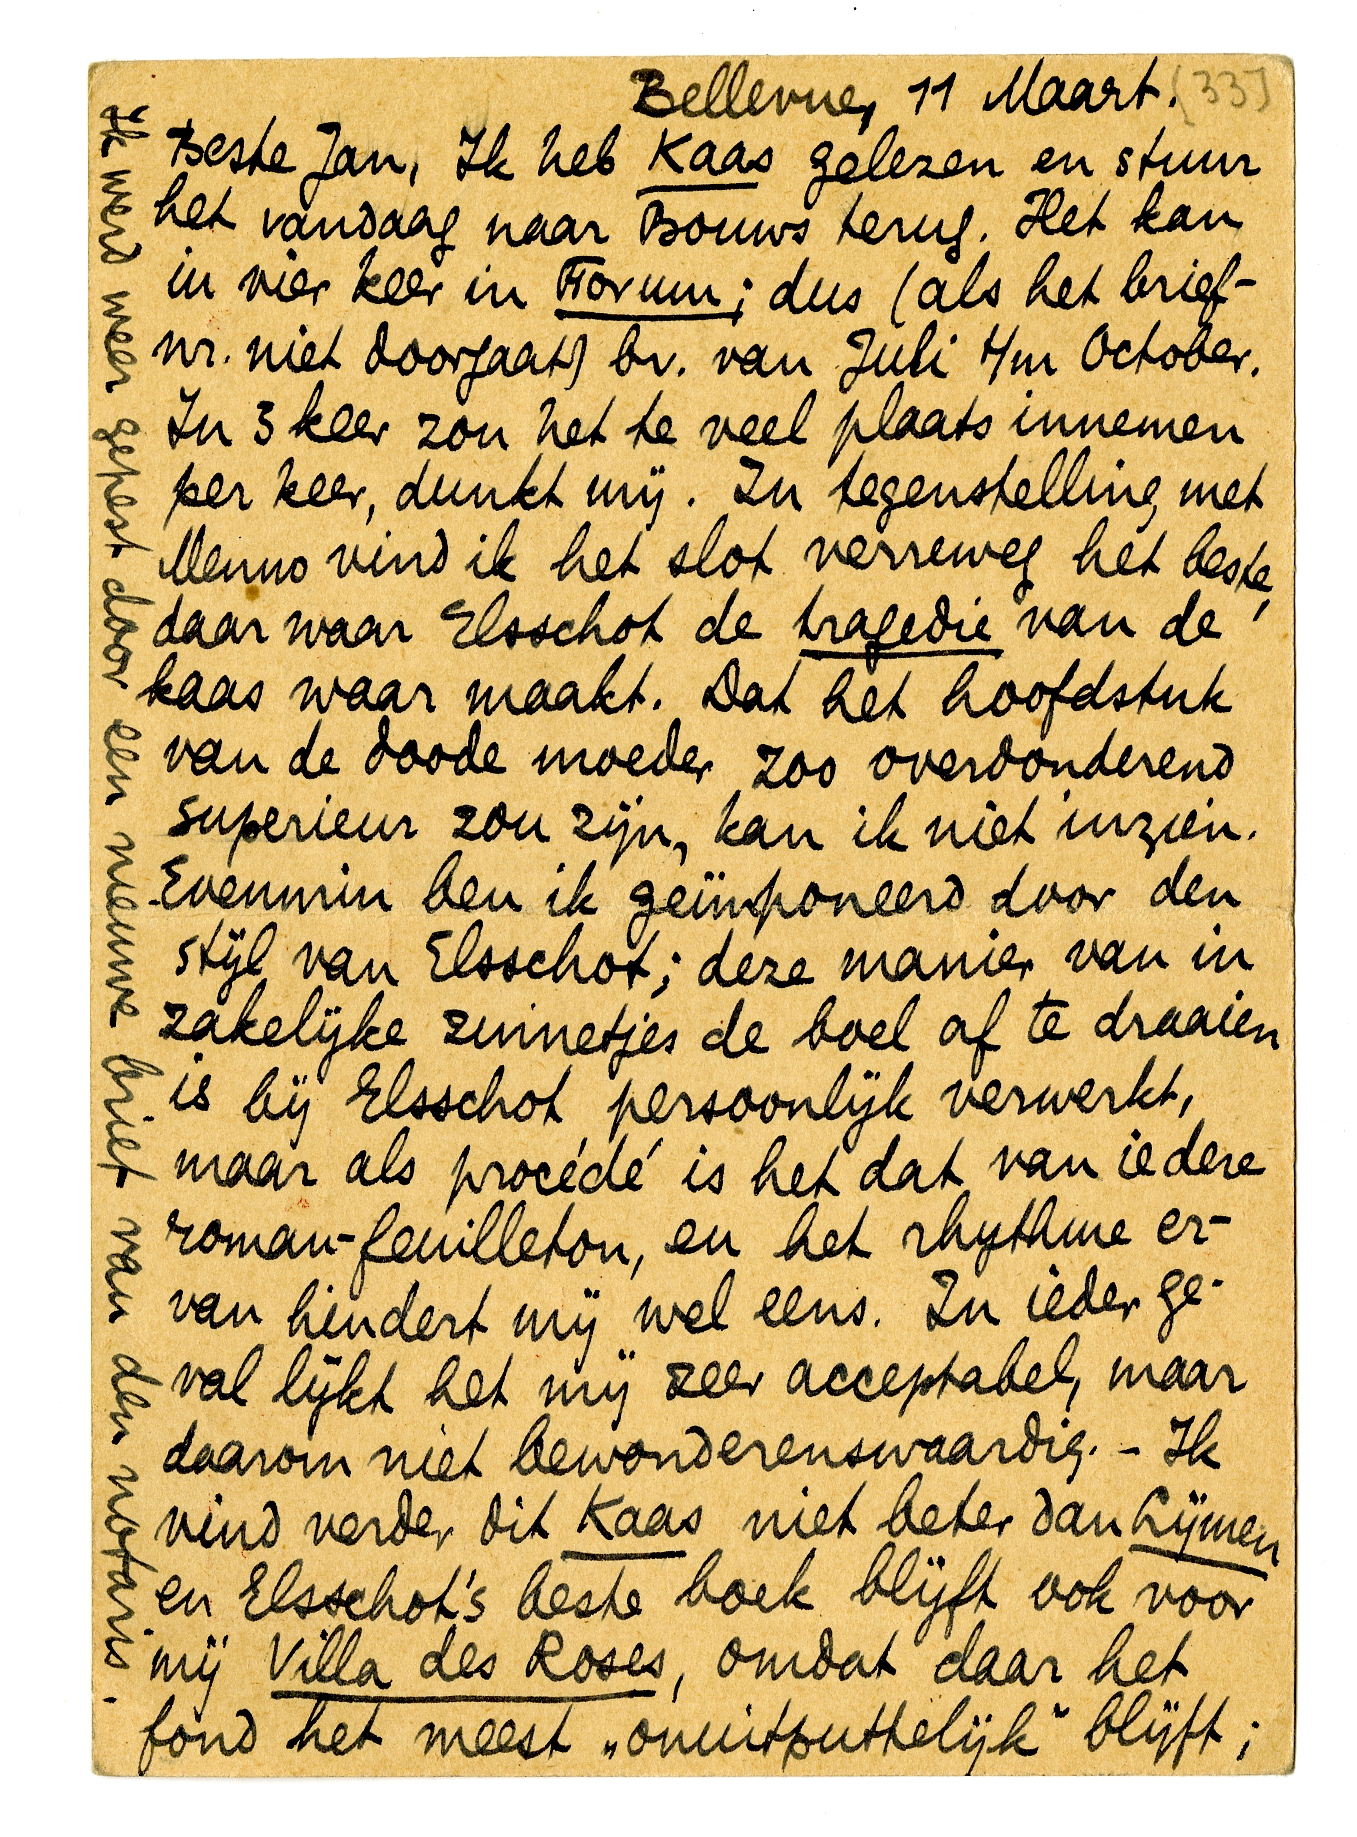 Bellevue, 11 Maart. (33)
Beste Jan, Ik heb Kaas gelezen en stuur
het vandaag naar Bouws terug. Het kan
in vier keer in Forum; dus (als het brief-
nr. niet doorgaat) bv. van Juli t/m October.
In 3 keer zou het te veel plaats innemen
per keer, dunkt mij. In tegenstelling met
Menno vind ik het slot verreweg het beste,
daar waar Elsschot de tragedie van de
kaas waar maakt. Dat het hoofdstuk
van de doode moeder zoo overdonderend
superieur zou zijn, kan ik niet inzien.
Evenmin ben ik geïmponeerd door den
stijl van Elsschot; deze manier van in
zakelijke zinnetjes de boel af te draaien
is bij Elsschot persoonlijk verwerkt,
maar als procédé is het dat van iedere
roman-feuilleton, en het rhythme er-
van hindert mij wel eens. In ieder ge-
val lijkt het mij zeer acceptabel, maar
daarom niet bewonderenswaardig. - Ik
vind verder dit Kaas niet beter dan Lijmen
en Elsschot's beste boek blijft ook voor
mij Villa des Roses, omdat daar het
fond het meest „onuitputtelijk" blijft;
Ik werd weer gepest door een nieuwe brief van den notaris.